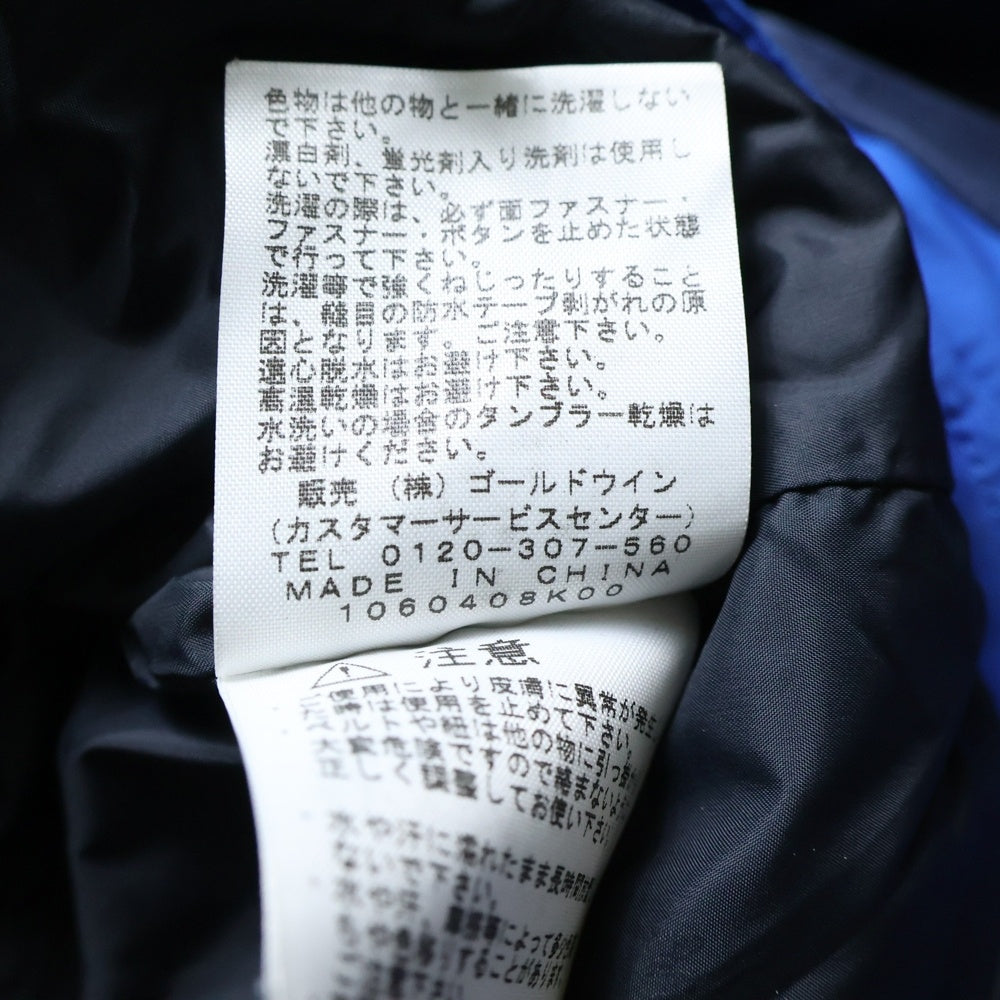 色物は他の物と一緒に洗濯しない
で下さい。
漂白剤、蛍光剤入り洗剤は使用し
ないで下さい。
洗濯の際は、必ず面ファスナー・
ファスナー・ボタンを止めた状態
で行って下さい。
洗濯等で強くねじったりすること
は、縫目の防水テープ剥がれの原
因となります。ご注意下さい。
遠心脱水機はお避け下さい。
高温乾燥はお避け下さい。
水洗いの場合のタンブラー乾燥は
お避けください。
販売 (株) ゴールドウイン
(カスタマーサービスセンター)
TEL 0120-307-560
MADE IN CHINA
1060408K00
注意
使用により皮膚に異常が発生
用を止めて下さい。
や紐は他の物に引っ
険ですので絡まないよう
正しく調整してお使い下さい
水や汗に濡れたまま長時間
ないで下さい。
水や汗、
によって多少
することがあります